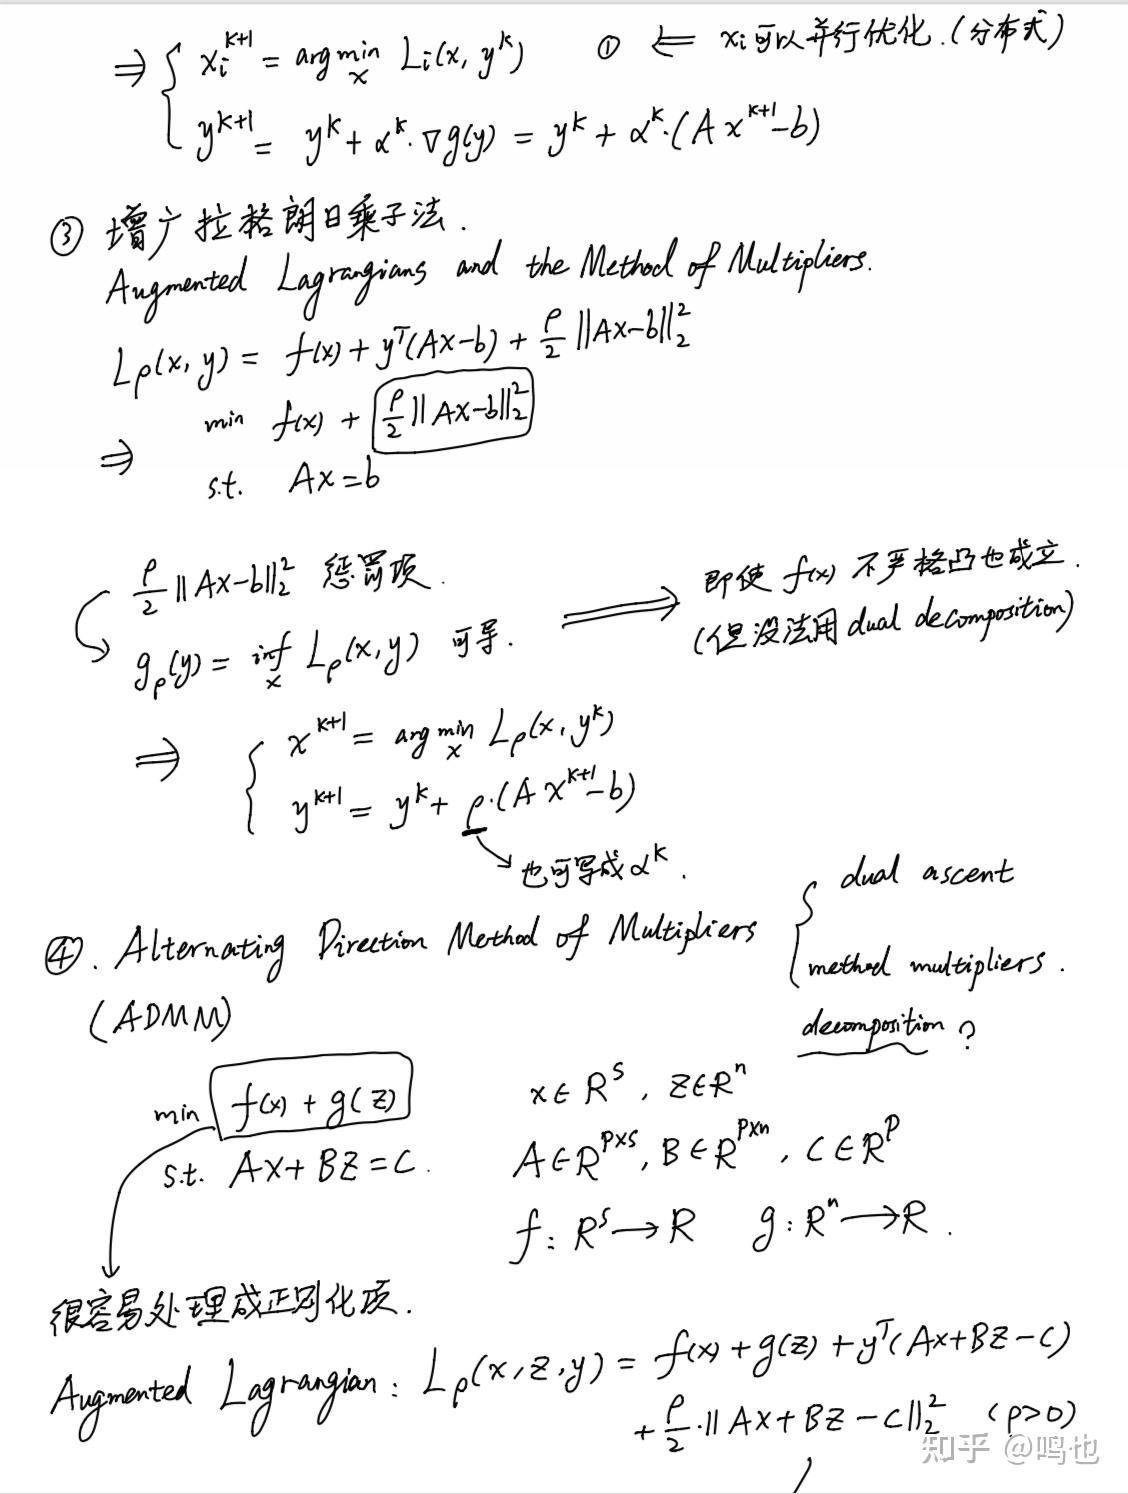 ⇒ { x_i^{k+1} = arg min_x L_i(x, y^k) ① ⇐ x_i可以并行优化.(分布式)
y^{k+1} = y^k + α^k · ∇g(y) = y^k + α^k·(A x^{k+1} − b)
③ 增广拉格朗日乘子法.
Augmented Lagrangians and the Method of Multipliers.
L_ρ(x, y) = f(x) + y^T(Ax−b) + ρ/2 ||Ax−b||_2^2
⇒ min f(x) + ρ/2 ||Ax−b||_2^2
s.t. Ax=b
ρ/2 ||Ax−b||_2^2 惩罚项.
g_ρ(y) = inf_x L_ρ(x,y) 可导. ⟹ 即使 f(x) 不严格凸也成立.
(但没法用 dual decomposition)
⇒ { x^{k+1} = arg min_x L_ρ(x, y^k)
y^{k+1} = y^k + ρ·(A x^{k+1} − b)
也可写成 α^k.
④. Alternating Direction Method of Multipliers
(ADMM)
{ dual ascent
method multipliers.
decomposition ?
min f(x) + g(z)
s.t. Ax + Bz = c.
x ∈ R^s, z ∈ R^n
A ∈ R^{p×s}, B ∈ R^{p×n}, c ∈ R^p
f: R^s → R g: R^n → R.
很容易处理成正则化项.
Augmented Lagrangian: L_ρ(x, z, y) = f(x) + g(z) + y^T(Ax+Bz−c)
+ ρ/2 ·|| Ax+Bz−c||_2^2 (ρ>0)
知乎 @鸣也